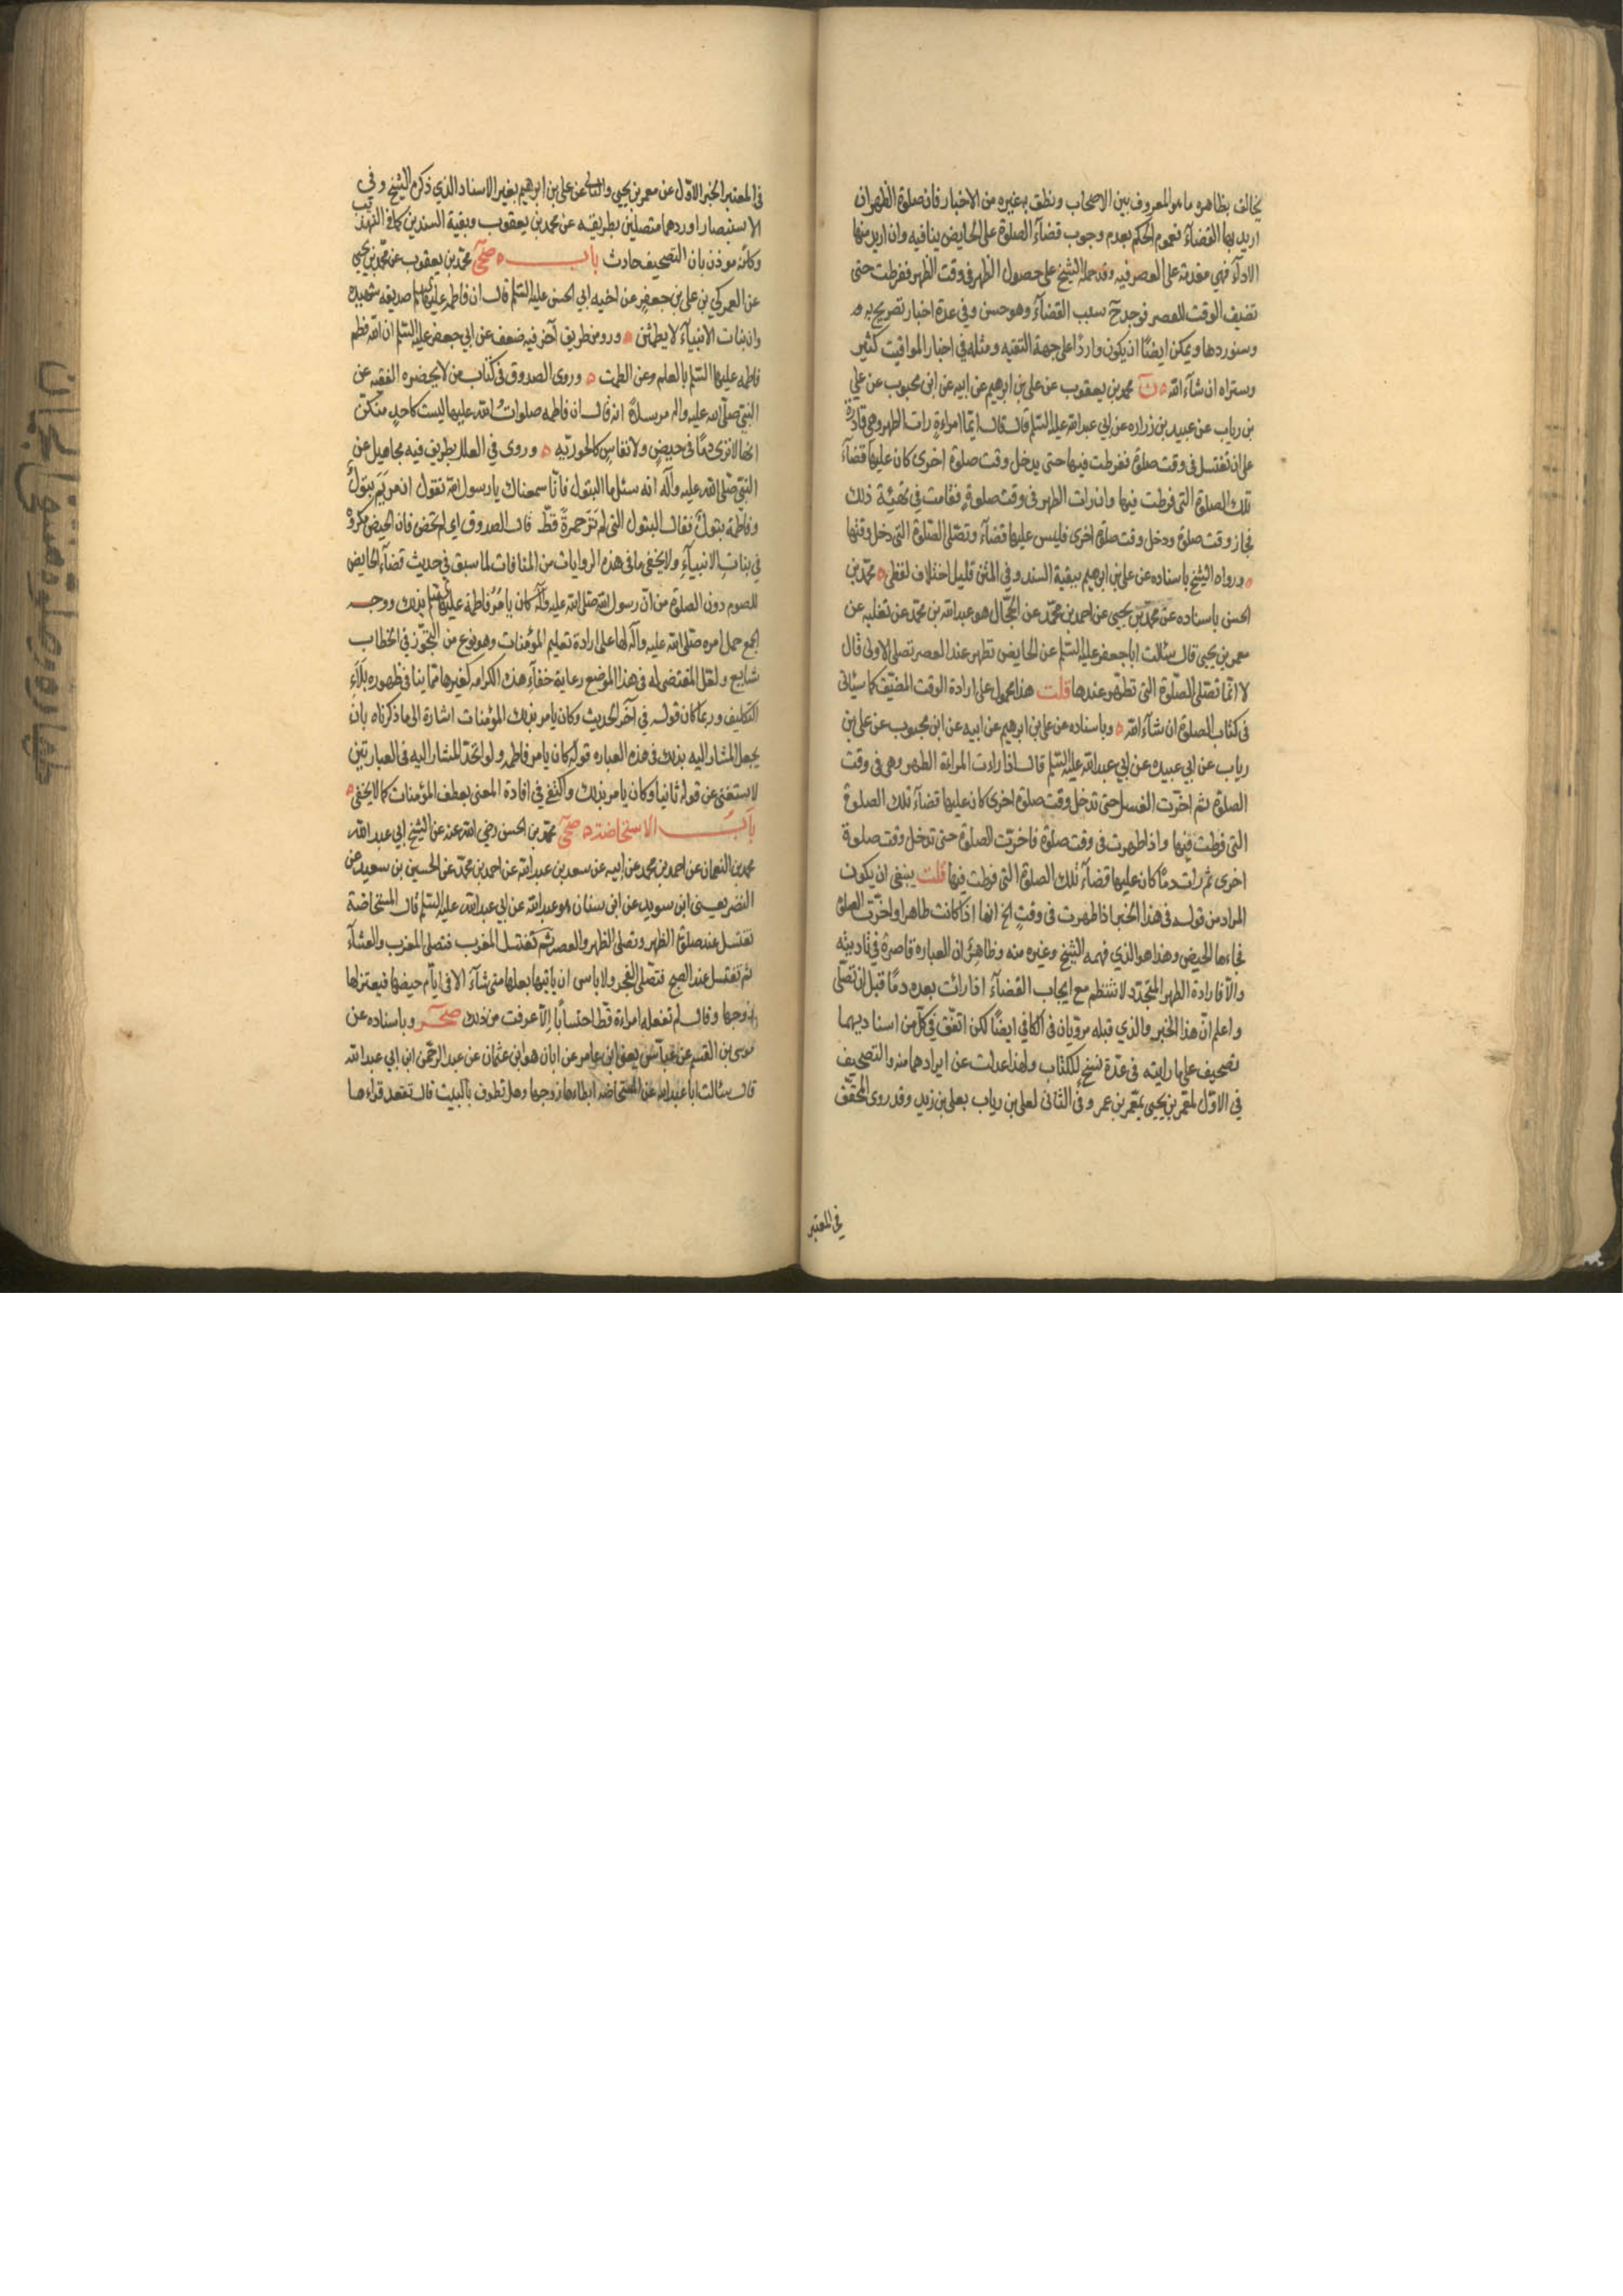 يخالف بظاهره ما هو المعروف بين الاصحاب ونطق به غيره من الاخبار فان صلوة الظهر ان
اريد بها القضآء فعموم الحكم بعدم وجوب قضآء الصلوة على الحايض ينافيه وان اريد منها
الادآء فهي مقدمة على العصر فيه وقد حمله الشيخ على حصول الطهر في وقت الظهر ففرطت حتى
تضيف الوقت للعصر فوجد ح سبب القضآء وهو حسن وفي عدة اخبار تصريح به
وسنوردها ويمكن ايضًا ان يكون واردًا على جهة التقيه ومثله في اخبار المواقيت كثير
وستراه ان شآء الله ن محمد بن يعقوب عن علي بن ابرهيم عن ابيه عن ابن محبوب عن علي
بن رياب عن عبيد بن زراره عن ابي عبد الله عليه السلم قال قال ايما امراءة رات الطهر وهي قادرة
على ان تغتسل في وقت صلوة ففرطت فيها حتى يدخل وقت صلوة اخرى كان عليها قضآء
تلك الصلوة التي فرطت فيها وان رات الطهر في وقت صلوة فقامت في تهيئة ذلك
فجاز وقت صلوة ودخل وقت صلوة اخرى فليس عليها قضآء وتصلى الصلوة التي دخل وقتها
ورواه الشيخ باسناده عن علي بن ابرهيم ببقية السند وفي المتن قليل اختلاف لفظي محمد بن
الحسن باسناده عن محمد بن يحيى عن احمد بن محمد عن الحجال هو عبد الله بن محمد عن ثعلبه عن
معمر بن يحيى قال سئالت ابا جعفر عليه السلم عن الحايض تطهر عند العصر تصلى الاولى قال
لا انما تصلى الصلوة التي تطهر عندها قلت هذا محمول على ارادة الوقت المضيق كما سياتي
في كتاب الصلوة ان شآء الله وباسناده عن علي بن ابرهيم عن ابيه عن ابن محبوب عن علي بن
رياب عن ابي عبيده عن ابي عبد الله عليه السلم قال اذا رات المراءة الطهر وهي في وقت
الصلوة ثم اخرت الغسل حتى تدخل وقت صلوة اخرى كان عليها قضآء تلك الصلوة
التي فرطت فيها واذا طهرت في وقت صلوة فاخرت الصلوة حتى تدخل وقت صلوة
اخرى ثم رات دمًا كان عليها قضآء تلك الصلوة التي فرطت فيها قلت ينبغي ان يكون
المراد من قوله في هذا الخبر اذا طهرت في وقت الخ انها اذا كانت طاهرا واخرت الصلوة
فجاءها الحيض وهذا هو الذي فهمه الشيخ وغيره منه وظاهر ان العباره قاصرة في تاديته
والا فارادة الطهر المتجدد لا تنتظم مع ايجاب القضآء اذا رات بعده دمًا قبل ان تصلى
واعلم ان هذا الخبر والذي قبله مرويان في الكافي ايضًا لكن اتفق في كل من اسناديهما
تصحيف على ما رايته في عدة نسخ للكتاب ولهذا عدلت عن ايرادهما منه والتصحيف
في الاول لمعمر بن يحيى بمعمر بن عمر وفي الثاني لعلي بن رياب بعلي بن زيد وقد روى المحقق
في المعتبر
في المعتبر الخبر الاول عن معمر بن يحيى والثاني عن علي بن ابرهيم بغير الاسناد الذي ذكره الشيخ وفي
الاستبصار اوردهما متصلين بطريقه عن محمد بن يعقوب وبقية السندين كما في التهذيب
وكانه موذن بان التصحيف حادث باب صحي محمد بن يعقوب عن محمد بن يحيى
عن العمركي بن علي بن جعفر عن اخيه ابي الحسن عليه السلم قال ان فاطمه عليها السلم صديقه شهيده
وان بنات الانبيآء لا يطمثن وروى من طريق آخر فيه ضعف عن ابي جعفر عليه السلم ان الله فطم
فاطمه عليها السلم بالعلم وعن الطمث وروى الصدوق في كتاب من لا يحضره الفقيه عن
النبي صلى الله عليه واله مرسلاً انه قال ان فاطمه صلوات الله عليها ليست كاحدٍ منكن
انها لا ترى دمًا في حيضٍ ولا نفاسٍ كالحوريه وروى في العلل بطريق فيه مجاهيل عن
النبي صلى الله عليه وآله انه سئل ما البتول فانا سمعناك يا رسول الله تقول ان مريم بتول
وفاطمة بتول فقال البتول التي لم تر حمرةً قط قال الصدوق اي لم تحض فان الحيض مكروه
في بنات الانبيآء ولا يخفى ما في هذه الروايات من المنافات لما سبق في حديث قضآء الحايض
للصوم دون الصلوة من ان رسول الله صلى الله عليه وآله كان يامر فاطمة عليها السلم بذلك ووجه
الجمع حمل امره صلى الله عليه وآله لها على ارادة تعليم المؤمنات وهو نوع من التجوز في الخطاب
شايع ولعل المقتضى له في هذا الموضع رعاية خفآء هذه الكرامه كغيرها مما ينافي ظهوره بلآء
التكليف وربما كان قوله في آخر الحديث وكان يامر بذلك المؤمنات اشارة الى ما ذكرناه بان
يجعل المشار اليه بذلك في هذه العباره قوله كان يامر فاطمه ولو اتحد المشار اليه في العبارتين
لاستغنى عن قوله ثانيا وكان يامر بذلك واكتفى في افادة المعنى بعطف المؤمنات كما لا يخفى
باب الاستحاضة صحي محمد بن الحسن رضي الله عنه عن الشيخ ابي عبد الله
محمد بن النعمان عن احمد بن محمد عن ابيه عن سعد بن عبد الله عن احمد بن محمد عن الحسين بن سعيد عن
النضر يعنى ابن سويد عن ابن سنان هو عبد الله عن ابي عبد الله عليه السلم قال المستحاضة
تغتسل عند صلوة الظهر وتصلى الظهر والعصر ثم تغتسل المغرب فتصلى المغرب والعشآء
ثم تغتسل عند الصبح فتصلى الفجر ولا باس ان ياتيها بعلها متى شآء الا في ايام حيضها فيعتزلها
زوجها وقال لم تفعله امراءة قط احتسابًا الا عوفت من ذلك صحر وباسناده عن
موسى بن القسم عن عباس يعني ابن عامر عن ابان هو ابن عثمان عن عبد الرحمن ابن ابي عبد الله
قال سئالت ابا عبد الله عن المستحاضه ايطاءها زوجها وهل تطوف بالبيت قال تقعد قراءها
طهارة وصلوة منتقى الجمان